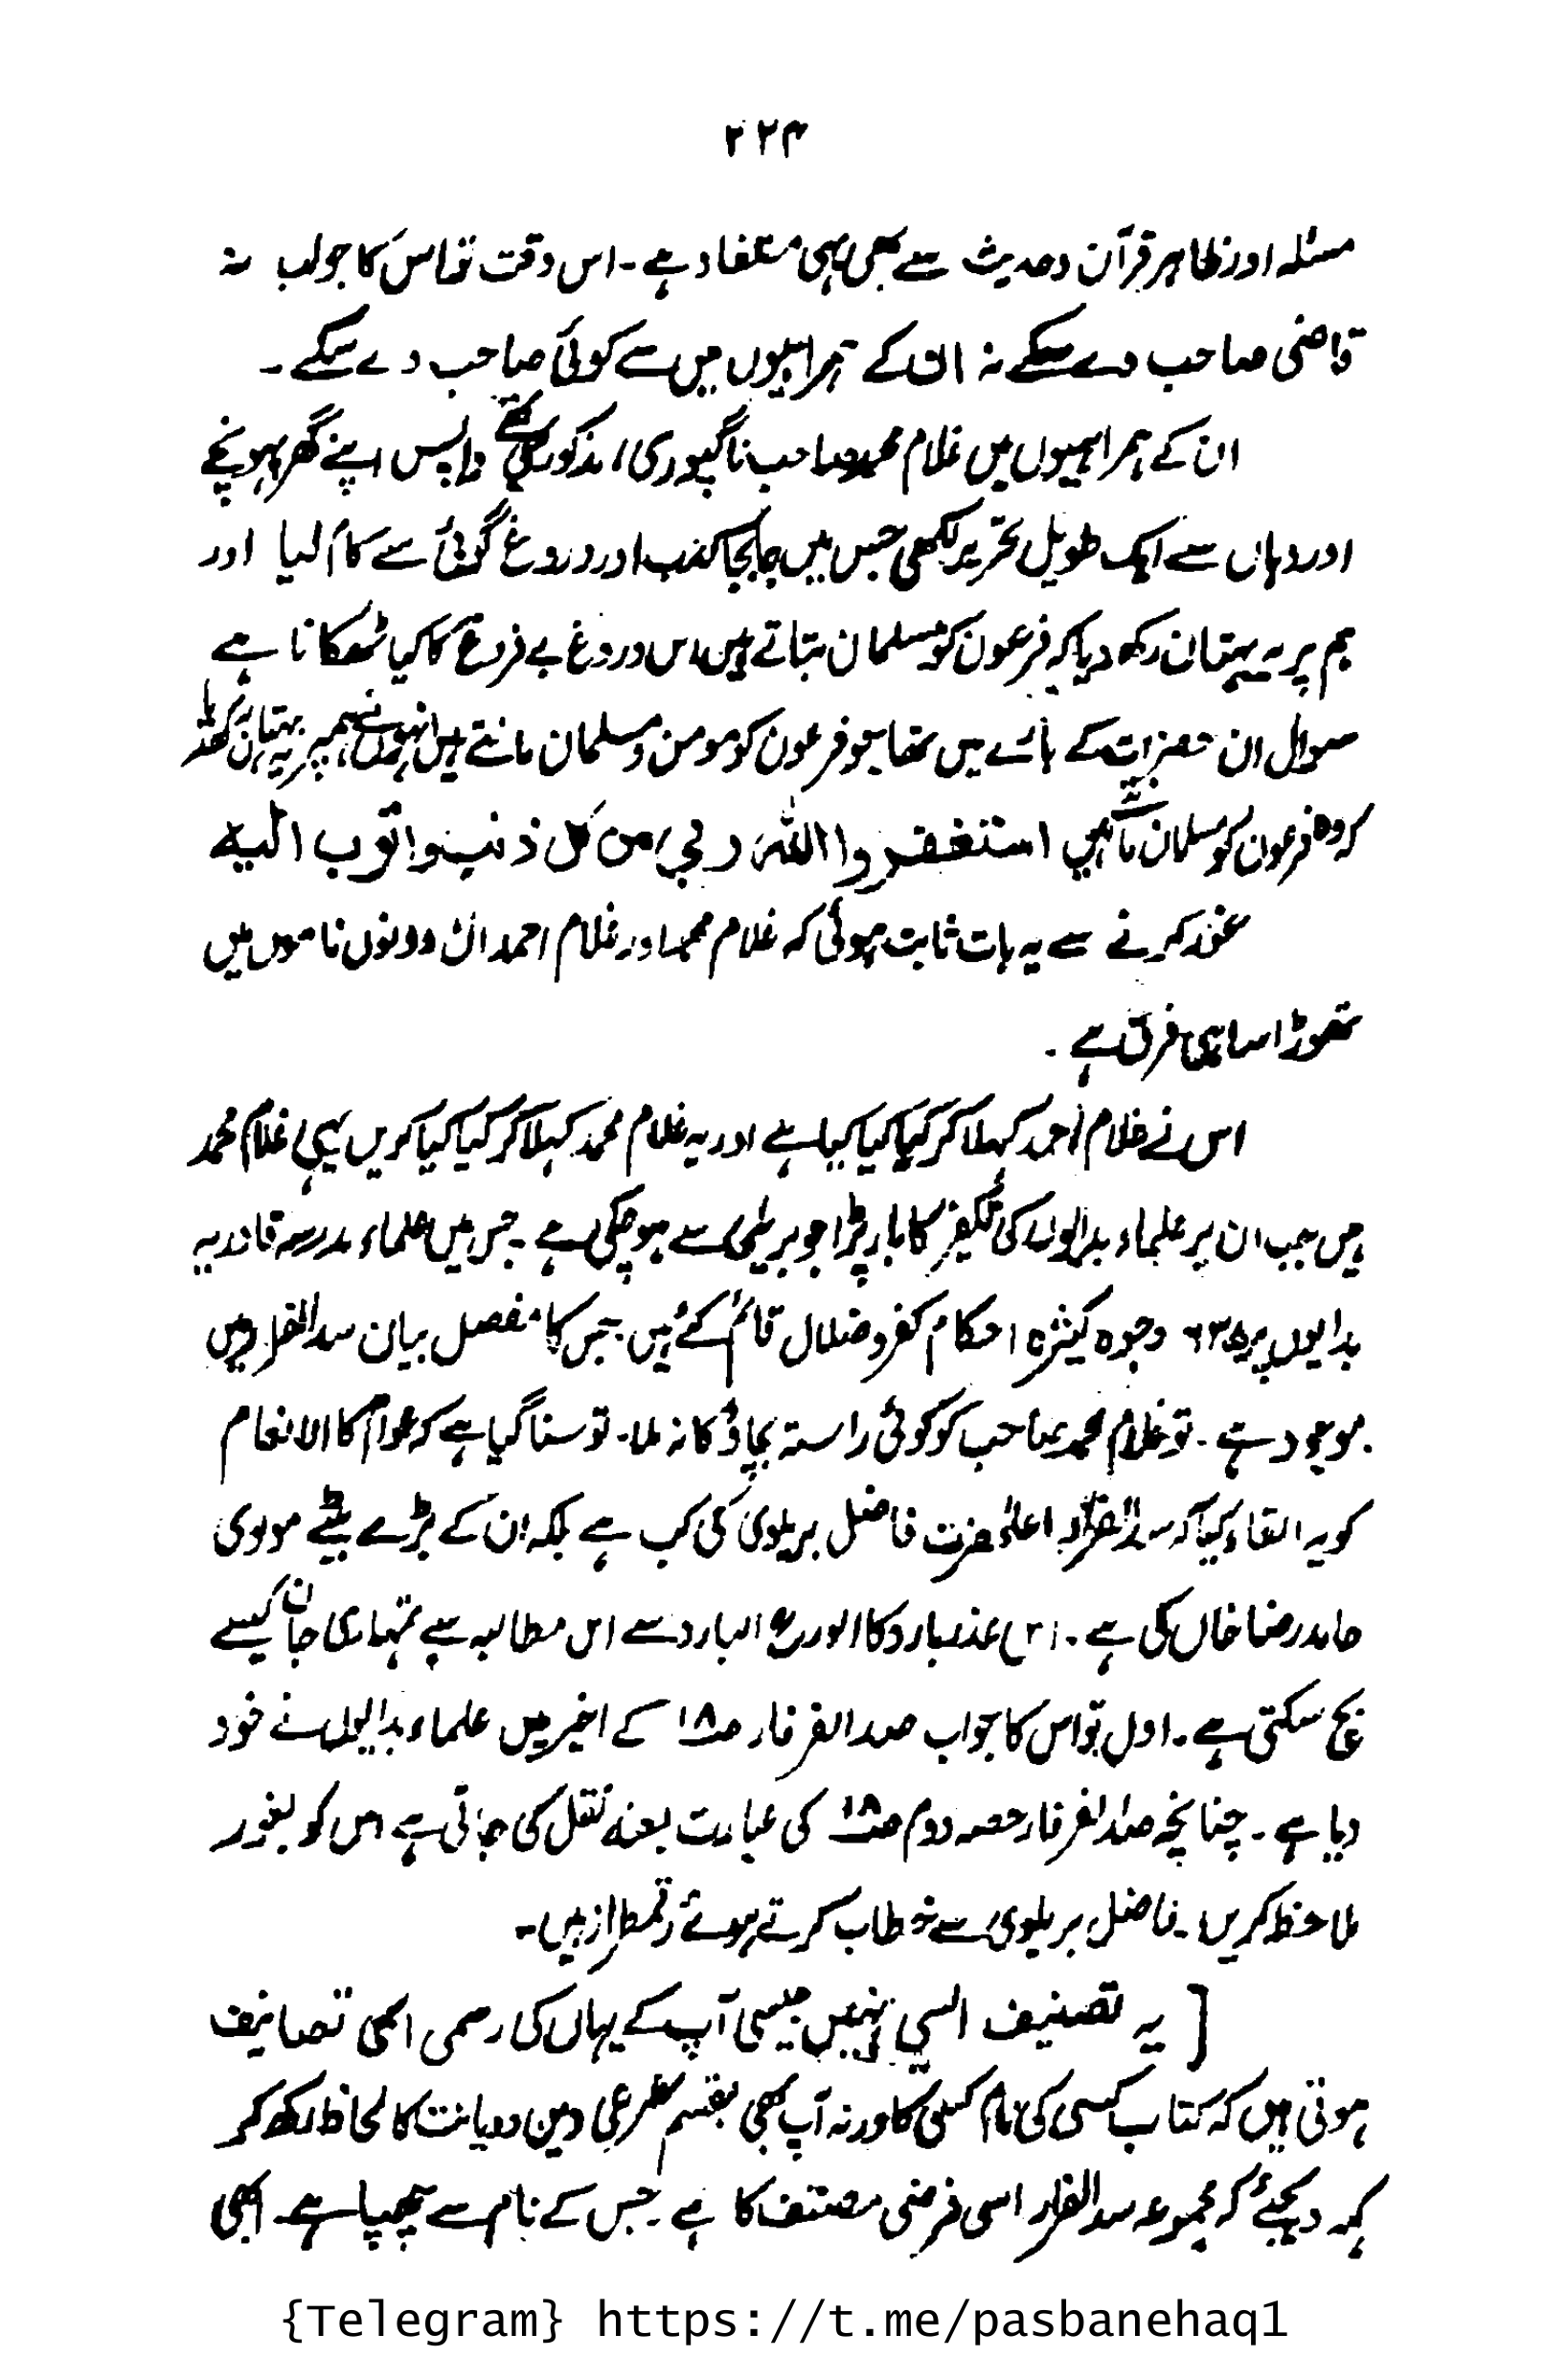 ۲۲۴
مسئلہ اور ظاہر قرآن و حدیث سے بھی یہی مستفاد ہے ۔ اس وقت تو اس کا جواب نہ
قاضی صاحب دے سکے نہ ان کے ہمراہیوں میں سے کوئی صاحب دے سکے ۔
ان کے ہمراہیوں میں غلام محمد صاحب ناگپوری، مذکور بھی تھے واپس اپنے گھر پہونچے
اور وہاں سے ایک طویل تحریر لکھی جس میں جابجا کذب اور دروغ گوئی سے کام لیا اور
ہم پر یہ بہتان رکھ دیا کہ فرعون کو مسلمان بتاتے ہیں، اس دروغ بے فروغ کا کیا ٹھکانا ہے
سوال ان حضرات کے بارے میں تھا جو فرعون کو مومن و مسلمان مانتے ہیں انہوں نے ہمیں پر یہ بہتان
کہ وہ فرعون کو مسلمان مانتے ہیں استغفروا اللہ ربی من کل ذنب واتوب الیہ
غور کرنے سے یہ بات ثابت ہوئی کہ غلام محمد اور غلام احمد ان دونوں ناموں میں
تھوڑا سا ہی فرق ہے ۔
اس نے غلام احمد کہلا کر کیا کیا کیا ہے اور یہ غلام محمد کہلا کر کیا کیا کریں یہی غلام محمد
ہیں جب ان پر علماء بدایوں کی تکفیر کا بار پڑا جو بریلی سے ہو چکی ہے ۔ جس میں علماء مدرسہ قادریہ
بدایوں پر وجوہ کثیرہ احکام کفر و ضلال قائم کئے ہیں ۔ جس کا مفصل بیان سد الفرار میں
موجود ہے ۔ تو غلام محمد صاحب کو کوئی راستہ بچاؤ کا نہ ملا ۔ تو سنا گیا ہے کہ عوام کا الانعام
کو یہ القاء کیا کہ سد الفرار اعلیٰ حضرت فاضل بریلوی کی کب ہے بلکہ ان کے بڑے بیٹے مولوی
حامد رضا خاں کی ہے ۔ عذر بارد کا الورع البارد سے اس مطالبہ سے تمہاری جان کیسے
بچ سکتی ہے ۔ اول تو اس کا جواب صد الفرفار ص۱۸ کے اخیر میں علماء بدایوں نے خود
دیا ہے ۔ چنانچہ صد الفرفار حصہ دوم ص۱۸ کی عبارت بعنہ نقل کی جاتی ہے اس کو بغور
ملاحظہ کریں ۔ فاضل بریلوی سے خطاب کرتے ہوئے رقمطراز ہیں ۔
[ یہ تصنیف ایسی نہیں جیسی آپ کے یہاں کی رسمی اسمی تصانیف
ہوتی ہیں کہ کتاب کسی کی نام کسی کا ورنہ آپ بھی بقسم شرعی دین و دیانت کا لحاظ رکھ کر
کہہ دیجئے کہ مجموعہ سد الفرار اسی فرضی مصنف کا ہے جس کے نام سے چھپا ہے ۔ ابھی
{Telegram} https://t.me/pasbanehaq1